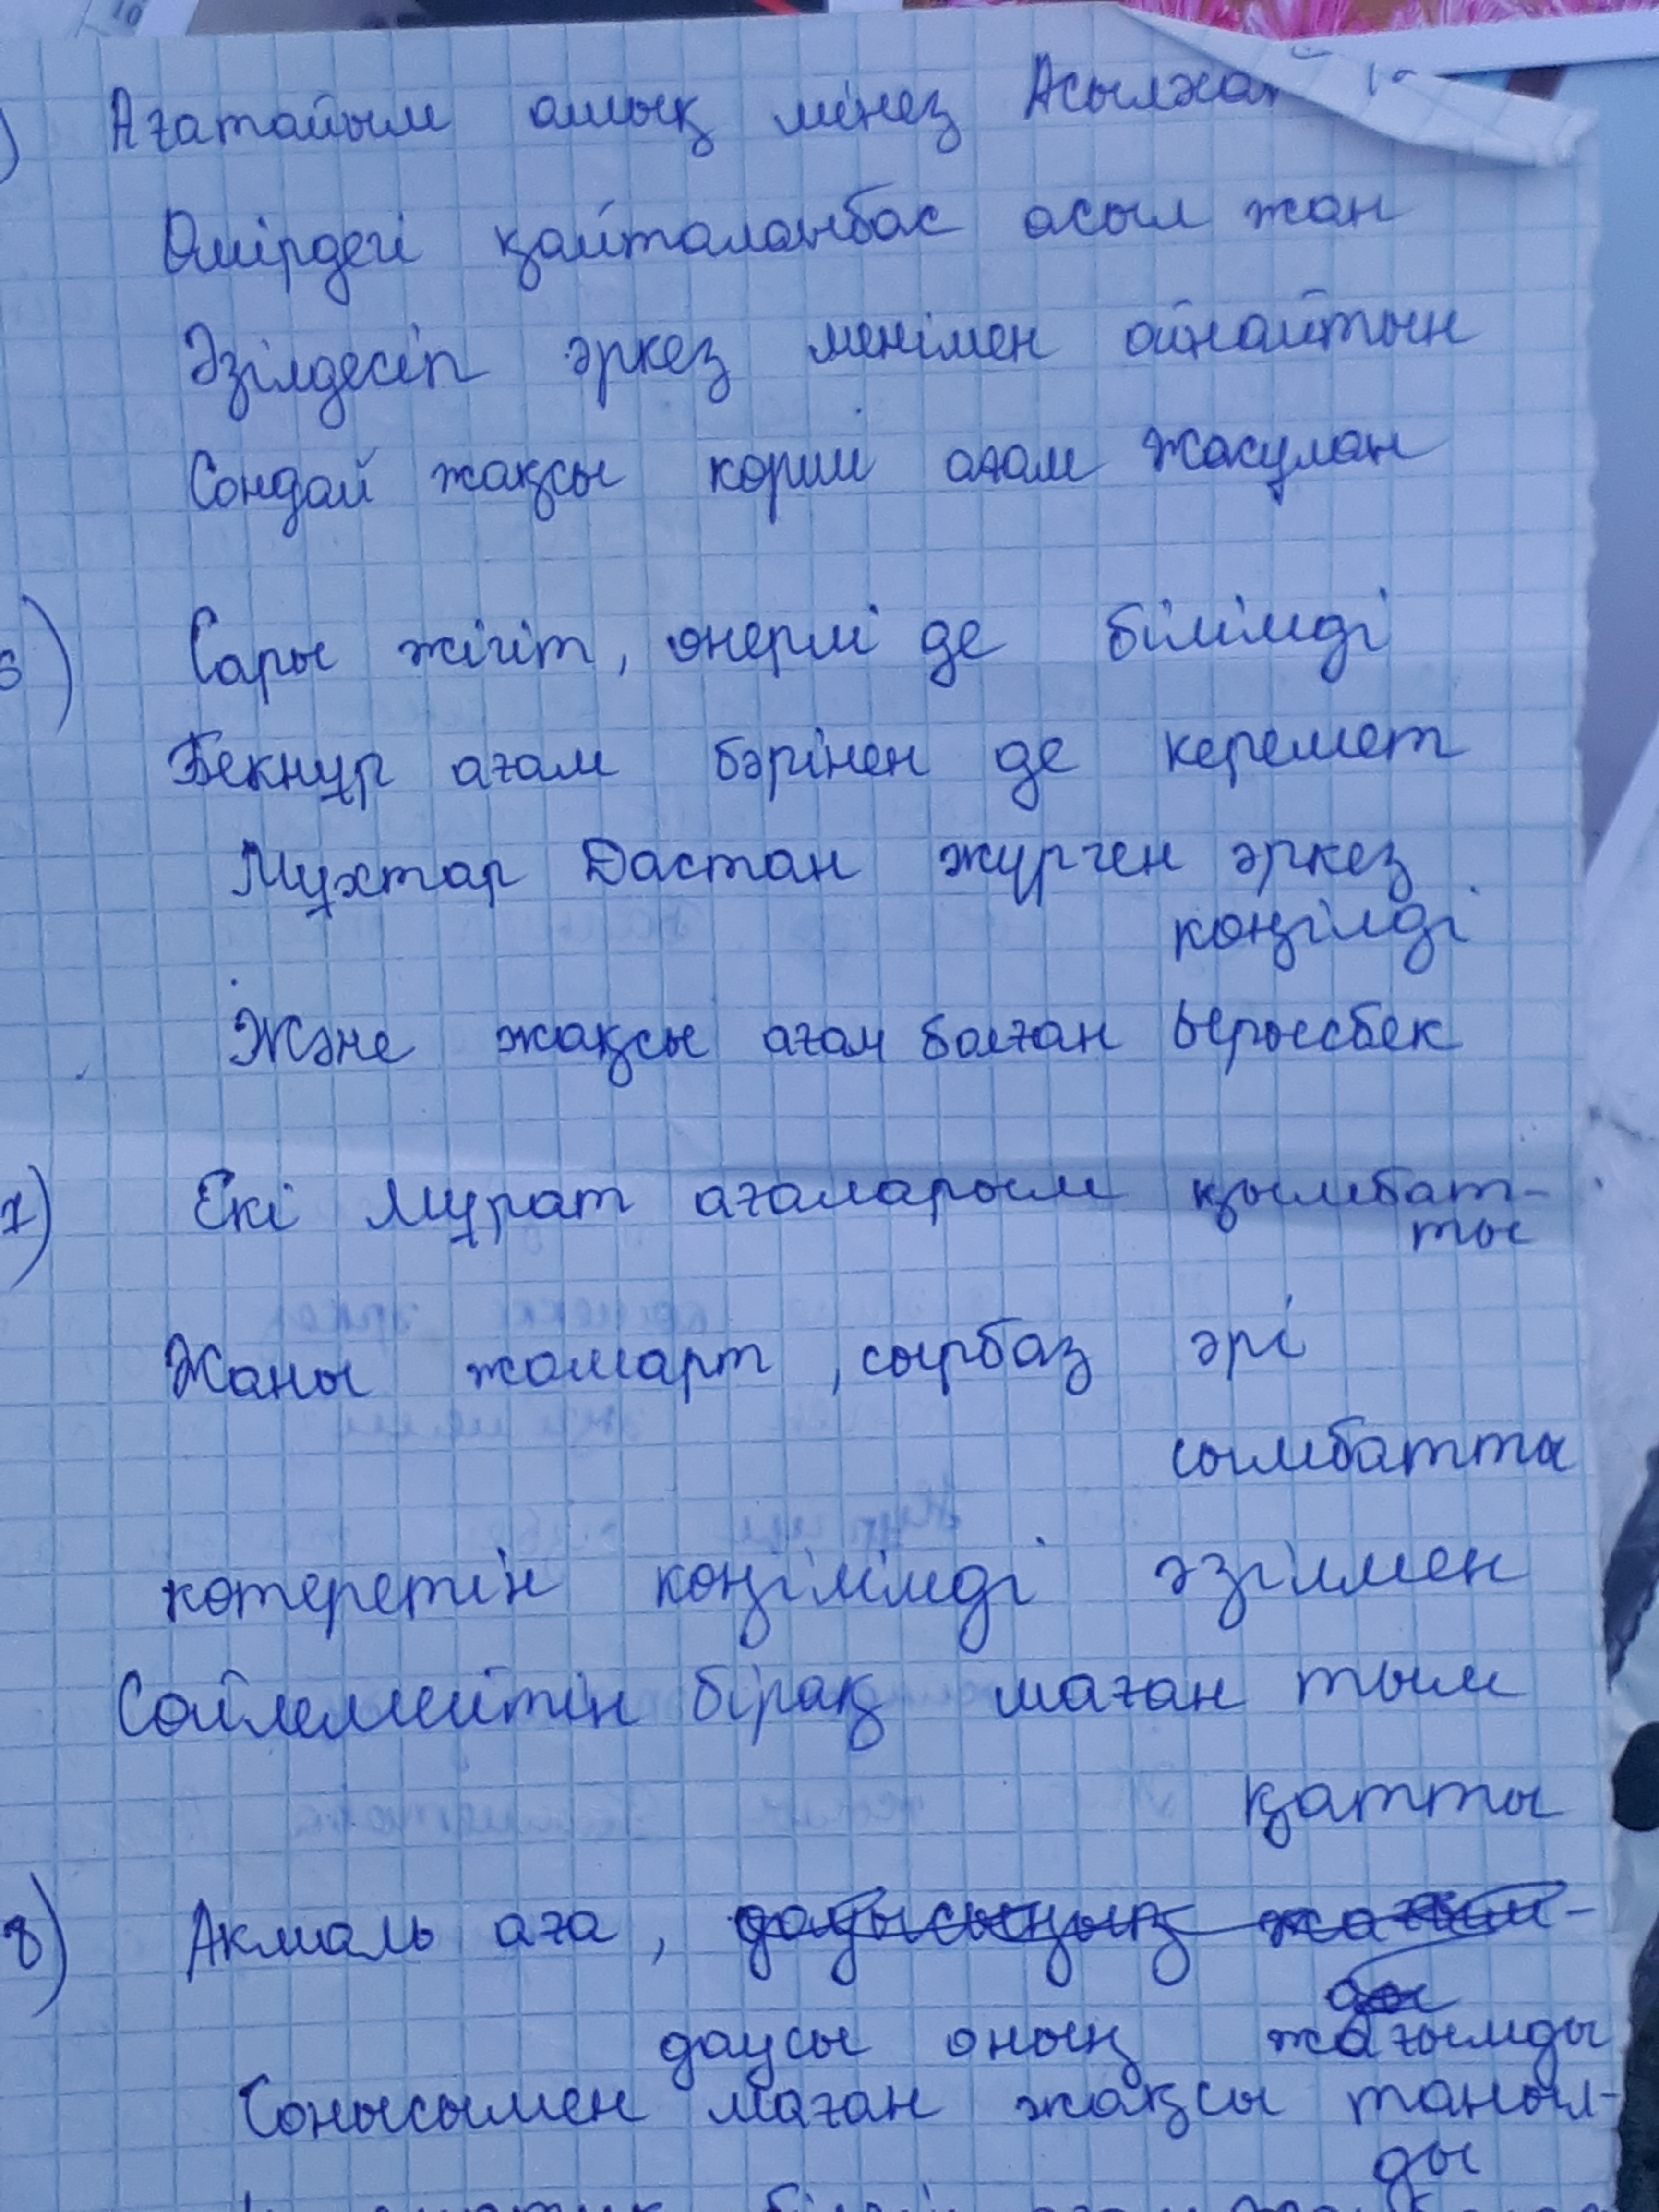 Ағатайым ашық мінез Асылжан
Өмірдегі қайталанбас асыл жан
Әзілдесіп әркез менімен ойнайтын
Сондай жақсы көрші ағам Жасұлан
6) Сары жігіт, өнерлі де білімді
Бекнұр ағам бәрінен де керемет
Мұхтар Дастан жүрген әркез
көңілді
Және жақсы ағам болған Ырысбек
7) Екі Мұрат ағаларым қымбат-
ты
Жаны жомарт, сырбаз әрі
сымбатты
көтеретін көңілімді әзілмен
Сөйлемейтін бірақ маған тым
қатты
8) Акмаль аға,
даусы оның жағымды
Сонысымен маған жақсы таныл-
ды